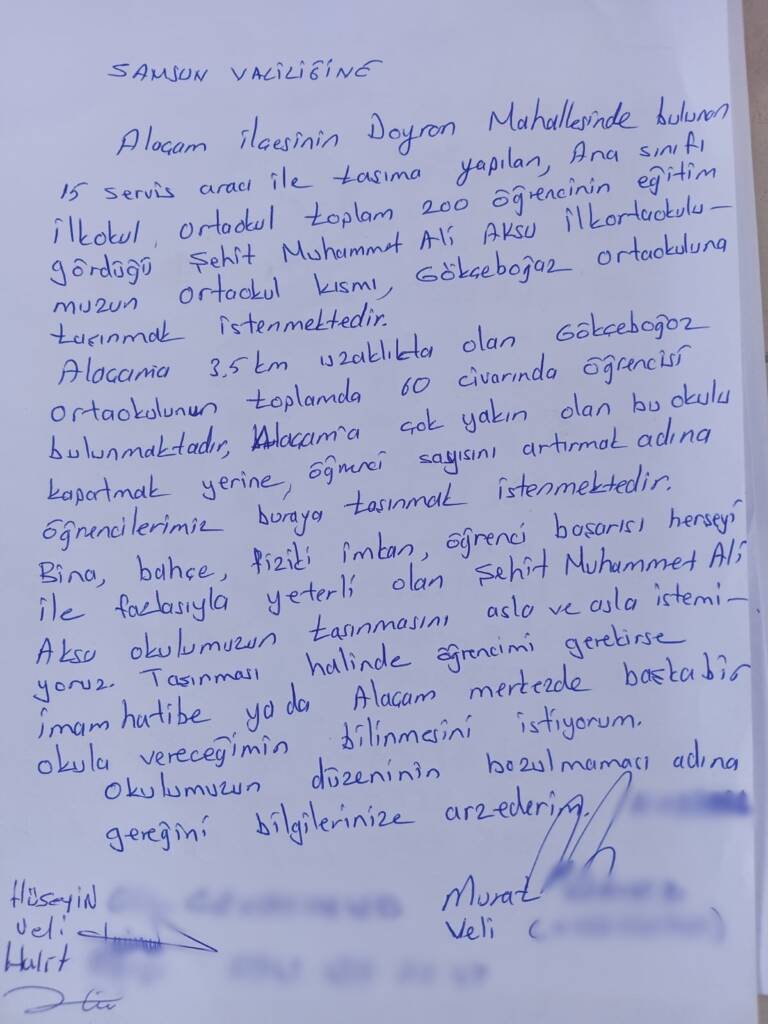 SAMSUN VALİLİĞİNE
Alaçam ilçesinin Doyran Mahallesinde bulunan
15 servis aracı ile taşıma yapılan, Ana sınıfı
ilkokul, ortaokul toplam 200 öğrencinin eğitim
gördüğü Şehit Muhammet Ali AKSU ilkortaokulu-
muzun ortaokul kısmı, Gökçeboğaz ortaokuluna
taşınmak istenmektedir.
Alaçama 3.5 km uzaklıkta olan Gökçeboğaz
ortaokulunun toplamda 60 civarında öğrencisi
bulunmaktadır, Alaçam'a çok yakın olan bu okulu
kapatmak yerine, öğrenci sayısını artırmak adına
öğrencilerimiz buraya taşınmak istenmektedir.
Bina, bahçe, fiziki imkan, öğrenci başarısı herşeyi
ile fazlasıyla yeterli olan Şehit Muhammet Ali
Aksu okulumuzun taşınmasını asla ve asla istemi-
yoruz. Taşınması halinde öğrencimi gerekirse
imam hatibe ya da Alaçam merkezde başka bir
okula vereceğimin bilinmesini istiyorum.
Okulumuzun düzeninin bozulmaması adına
gereğini bilgilerinize arzederim.
Murat
Veli
Hüseyin
Veli
Halit